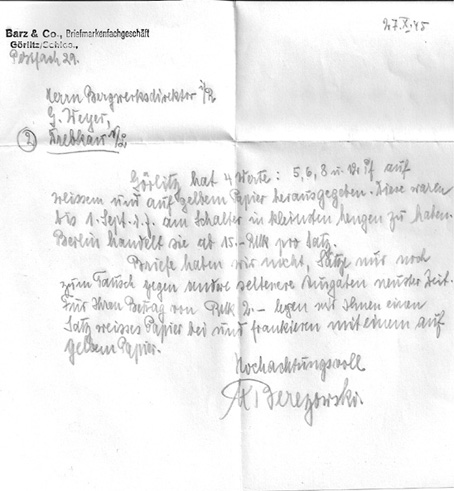 27.X.45
Barz & Co., Briefmarkenfachgeschäft
Görlitz/Schles.,
Postfach 29.
Herrn Bergwerksdirektor i/R
G. Weyer,
(2) Drebkau N/L.
Görlitz hat 4 Werte: 5, 6, 8 u. 12 Pf auf
weissem und auf gelbem Papier herausgegeben. Diese waren
bis 1. Sept. d.J. am Schalter in kleinsten Mengen zu haben.
Berlin handelt sie ab 15.- RMk pro Satz.
Briefe haben wir nicht, Sätze nur noch
zum Tausch gegen andre seltenere Ausgaben neuster Zeit.
Für Ihren Betrag von RMk 2.- legen wir Ihnen einen
Satz weisses Papier bei und frankieren mit einem auf
gelbem Papier.
Hochachtungsvoll
Berezowski.